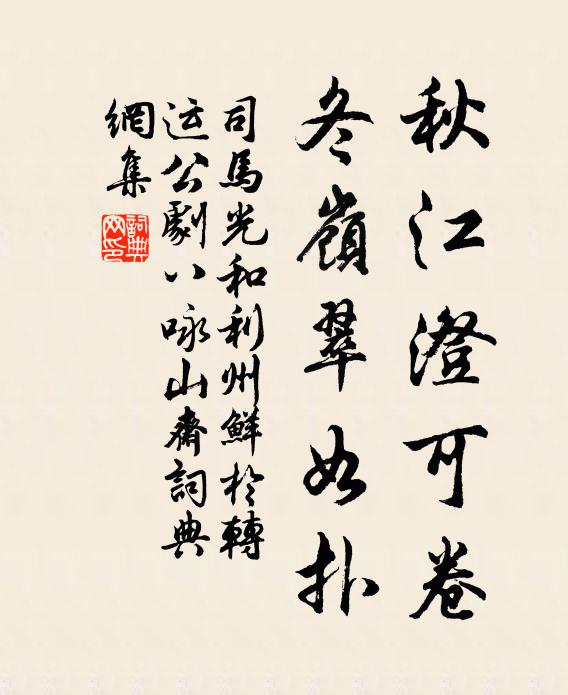 秋江澄可卷
冬嶺翠如扑
司馬光和利州鮮於轉
运公劇八咏山齋詞典
網集
詞典網印